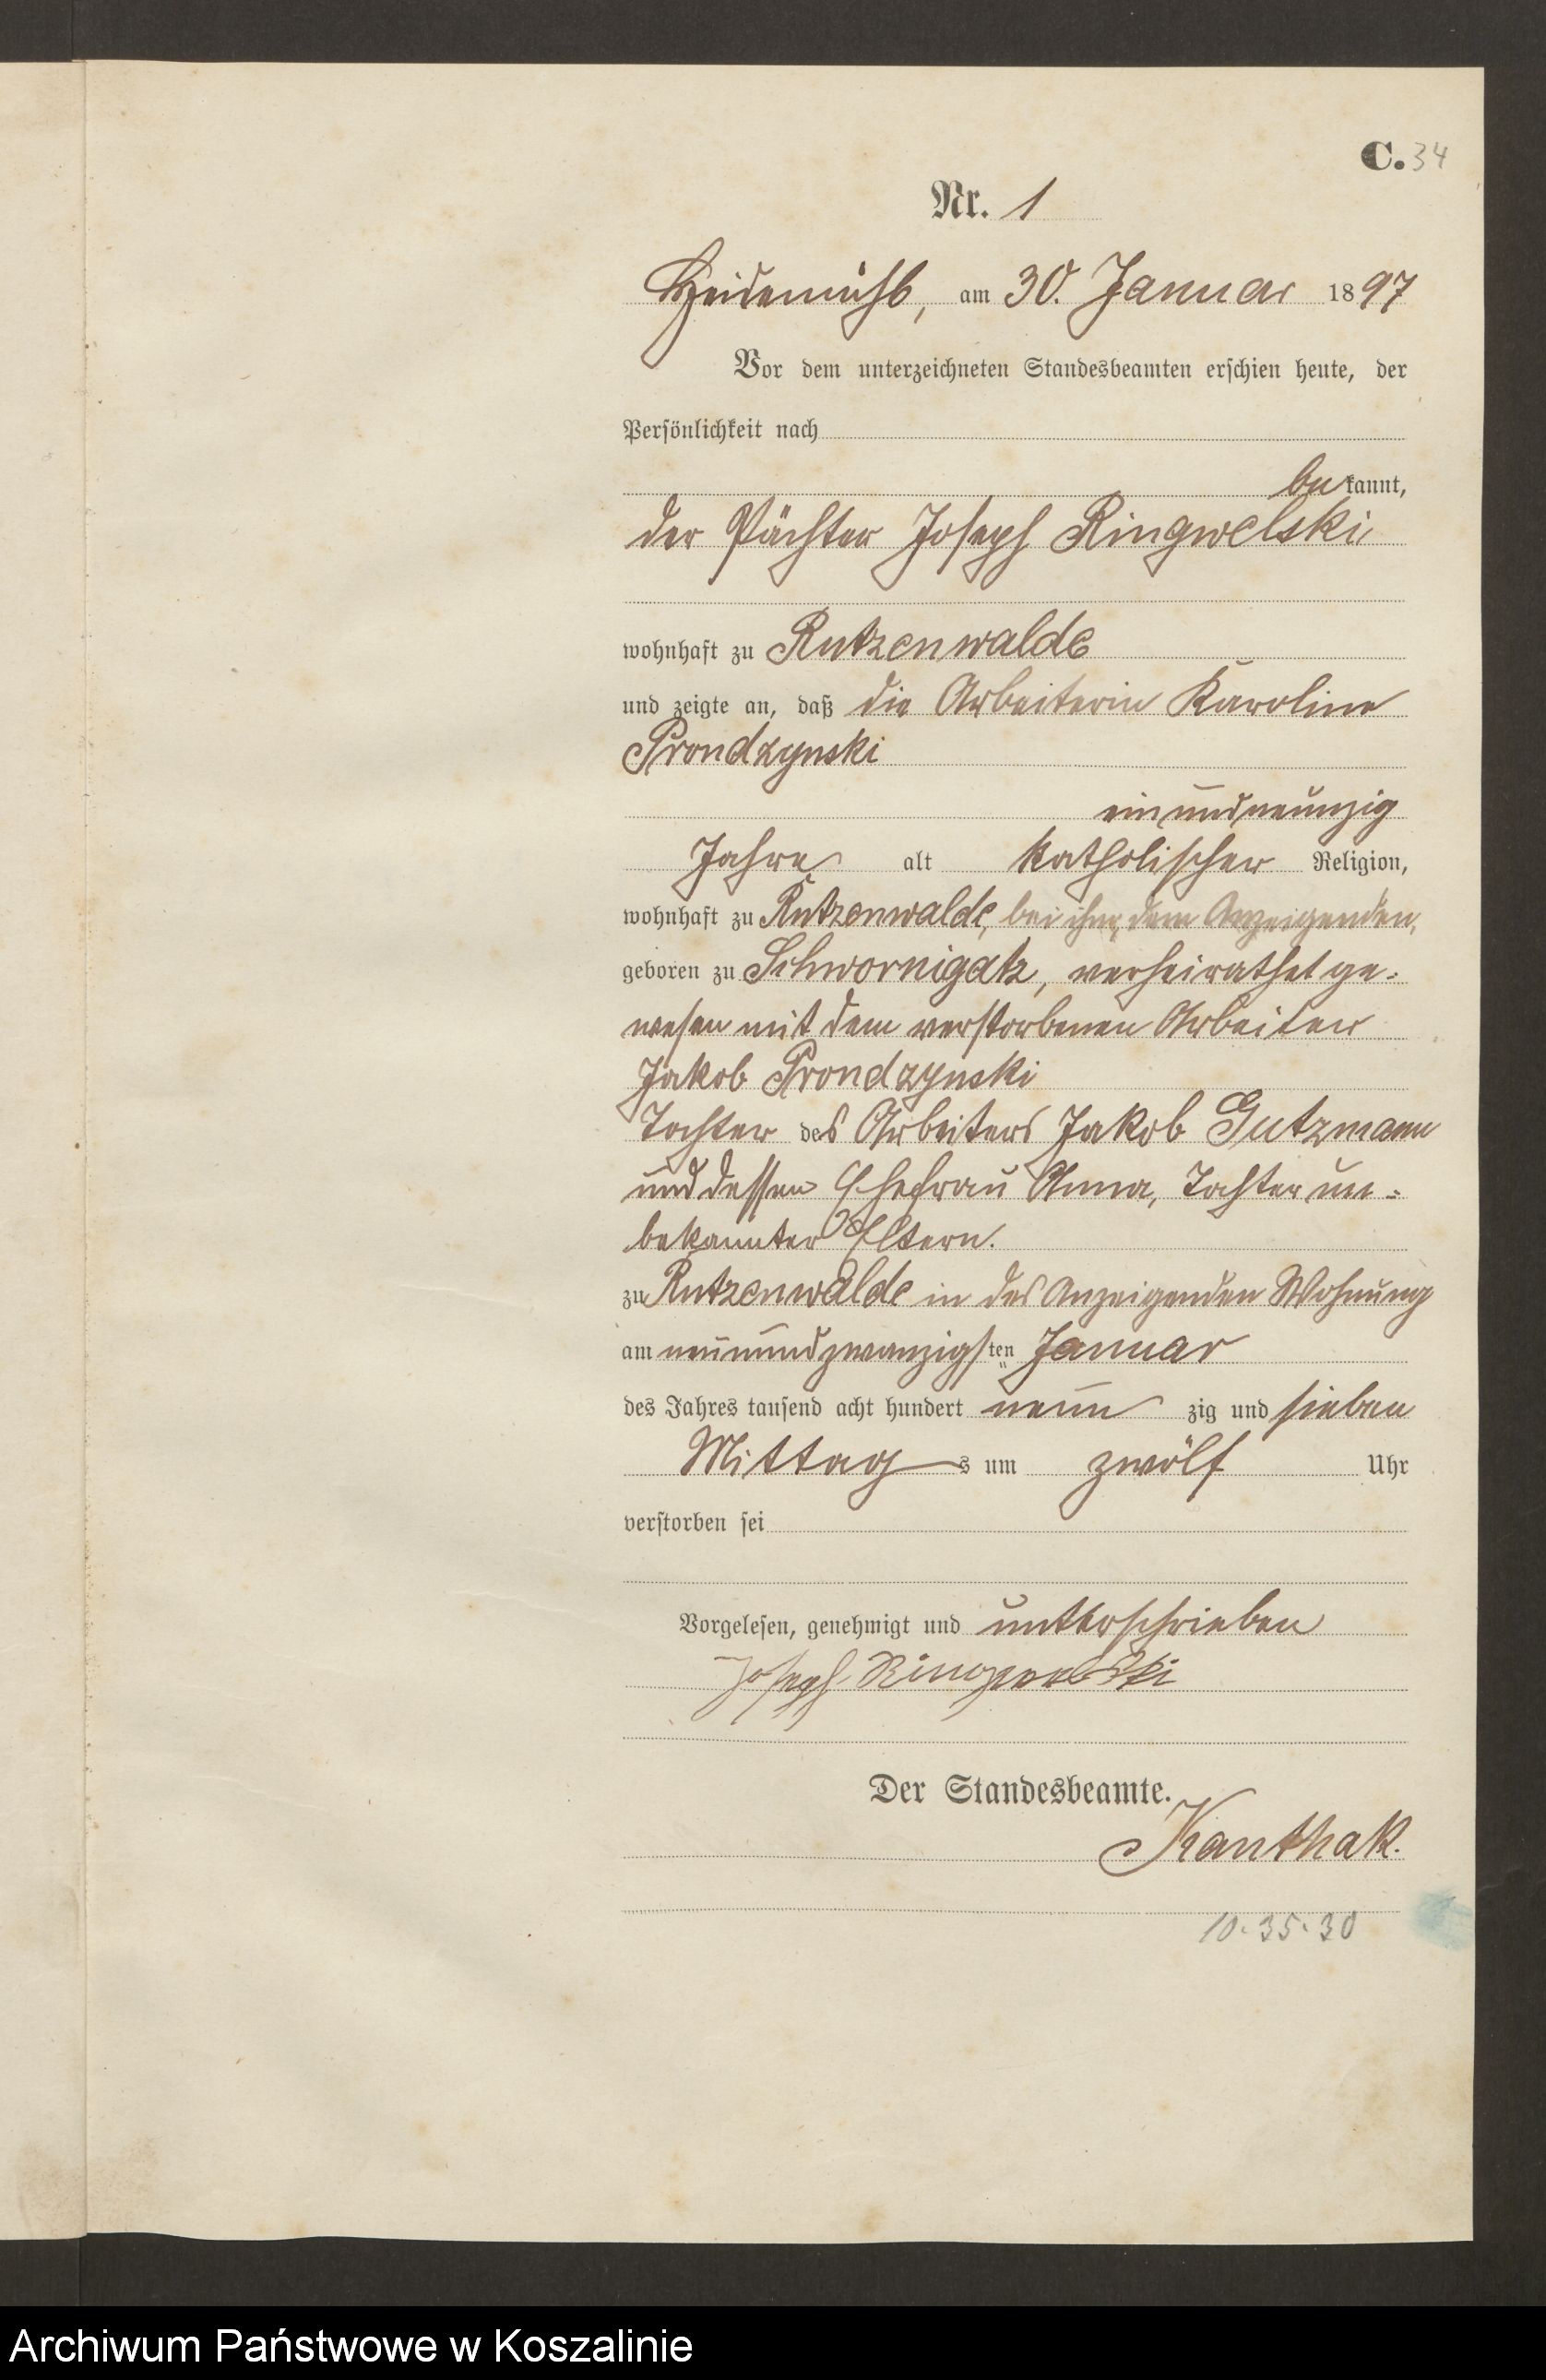 C. 34
Nr. 1
Heidemühl, am 30. Januar 1897
Vor dem unterzeichneten Standesbeamten erschien heute, der
Persönlichkeit nach
bekannt,
der Pächter Joseph Ringwelski
wohnhaft zu Rutzenwalde
und zeigte an, daß die Arbeiterin Karoline
Prondzynski
einundneunzig
Jahre alt katholischer Religion,
wohnhaft zu Rutzenwalde, bei ihm, dem Anzeigenden,
geboren zu Schwornigatz, verheirathet ge-
wesen mit dem verstorbenen Arbeiter
Jakob Prondzynski
Tochter des Arbeiters Jakob Gutzmann
und dessen Ehefrau Anna, Tochter un-
bekannter Eltern.
zu Rutzenwalde in des Anzeigenden Wohnung
am neunundzwanzigsten Januar
des Jahres tausend acht hundert neun zig und sieben
Mittags um zwölf Uhr
verstorben sei
Vorgelesen, genehmigt und unterschrieben
Joseph Ringwelski
Der Standesbeamte.
Kanthak.
10.35.30
Archiwum Państwowe w Koszalinie